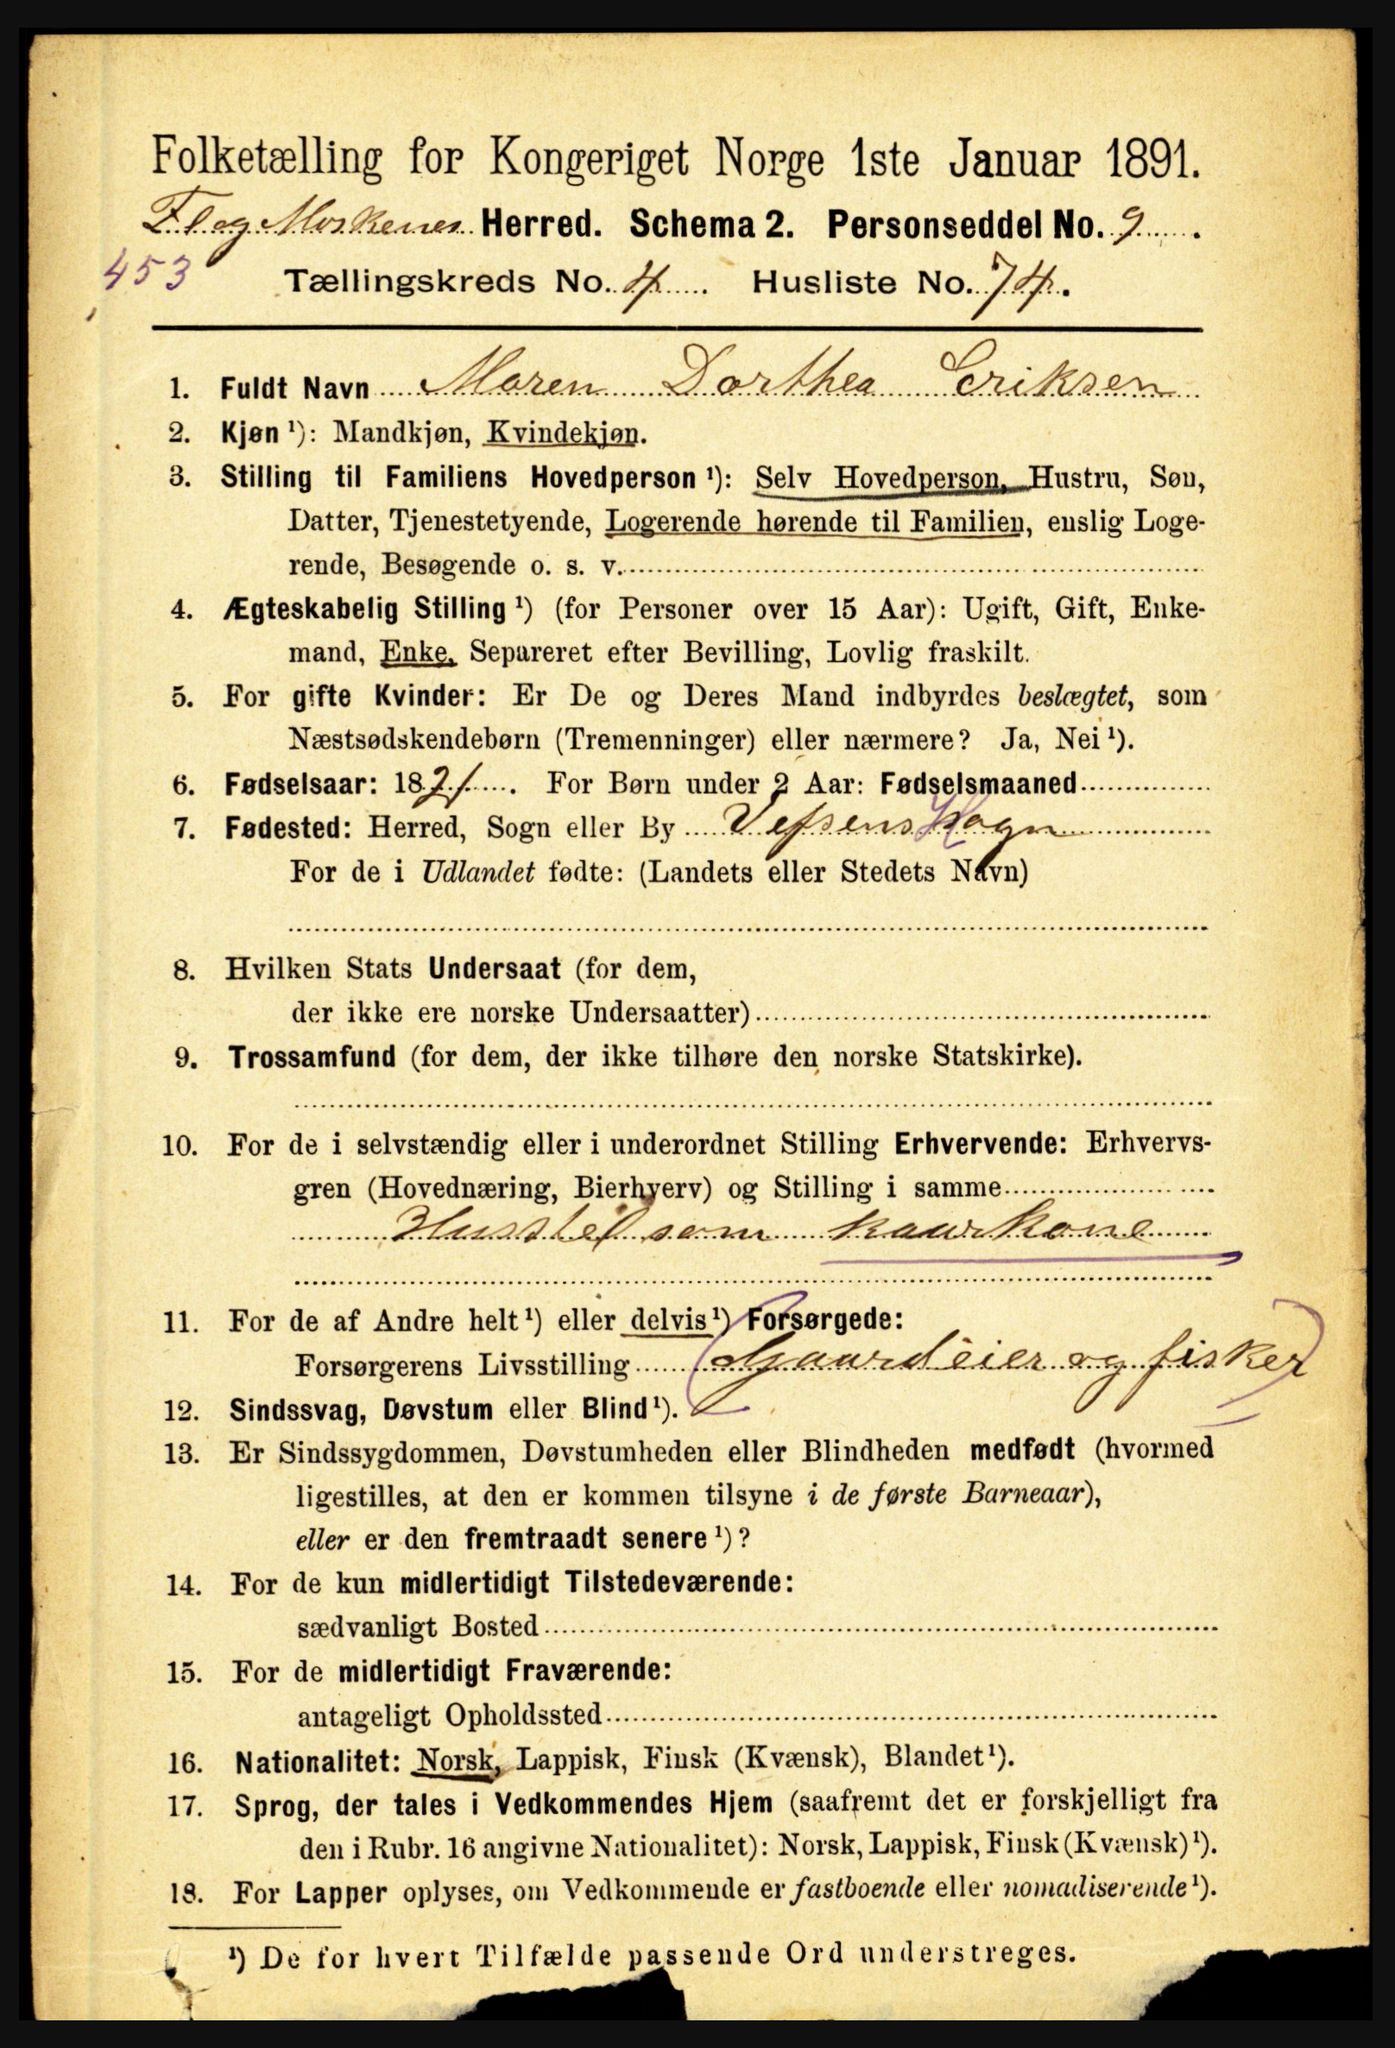 Folketælling for Kongeriget Norge 1ste Januar 1891.
Fl og Moskenes Herred. Schema 2. Personseddel No. 9.
453
Tællingskreds No. 4. Husliste No. 74.
1. Fuldt Navn Maren Dorthea Eriksen
2. Kjøn¹): Mandkjøn, Kvindekjøn.
3. Stilling til Familiens Hovedperson¹): Selv Hovedperson, Hustru, Søn,
Datter, Tjenestetyende, Logerende hørende til Familien, enslig Loge-
rende, Besøgende o. s. v.
4. Ægteskabelig Stilling¹) (for Personer over 15 Aar): Ugift, Gift, Enke-
mand, Enke, Separeret efter Bevilling, Lovlig fraskilt.
5. For gifte Kvinder: Er De og Deres Mand indbyrdes beslægtet, som
Næstsødskendebørn (Tremenninger) eller nærmere? Ja, Nei¹).
6. Fødselsaar: 1821. For Børn under 2 Aar: Fødselsmaaned
7. Fødested: Herred, Sogn eller By Vefsens Sogn
For de i Udlandet fødte: (Landets eller Stedets Navn)
8. Hvilken Stats Undersaat (for dem,
der ikke ere norske Undersaatter)
9. Trossamfund (for dem, der ikke tilhøre den norske Statskirke).
10. For de i selvstændig eller i underordnet Stilling Erhvervende: Erhvervs-
gren (Hovednæring, Bierhverv) og Stilling i samme
Husstel som kaarkone
11. For de af Andre helt¹) eller delvis¹) Forsørgede:
Forsørgerens Livsstilling (Gaardeier og fisker)
12. Sindssvag, Døvstum eller Blind¹).
13. Er Sindssygdommen, Døvstumheden eller Blindheden medfødt (hvormed
ligestilles, at den er kommen tilsyne i de første Barneaar),
eller er den fremtraadt senere¹)?
14. For de kun midlertidigt Tilstedeværende:
sædvanligt Bosted
15. For de midlertidigt Fraværende:
antageligt Opholdssted
16. Nationalitet: Norsk, Lappisk, Finsk (Kvænsk), Blandet¹).
17. Sprog, der tales i Vedkommendes Hjem (saafremt det er forskjelligt fra
den i Rubr. 16 angivne Nationalitet): Norsk, Lappisk, Finsk (Kvænsk)¹).
18. For Lapper oplyses, om Vedkommende er fastboende eller nomadiserende¹).
¹) De for hvert Tilfælde passende Ord understreges.